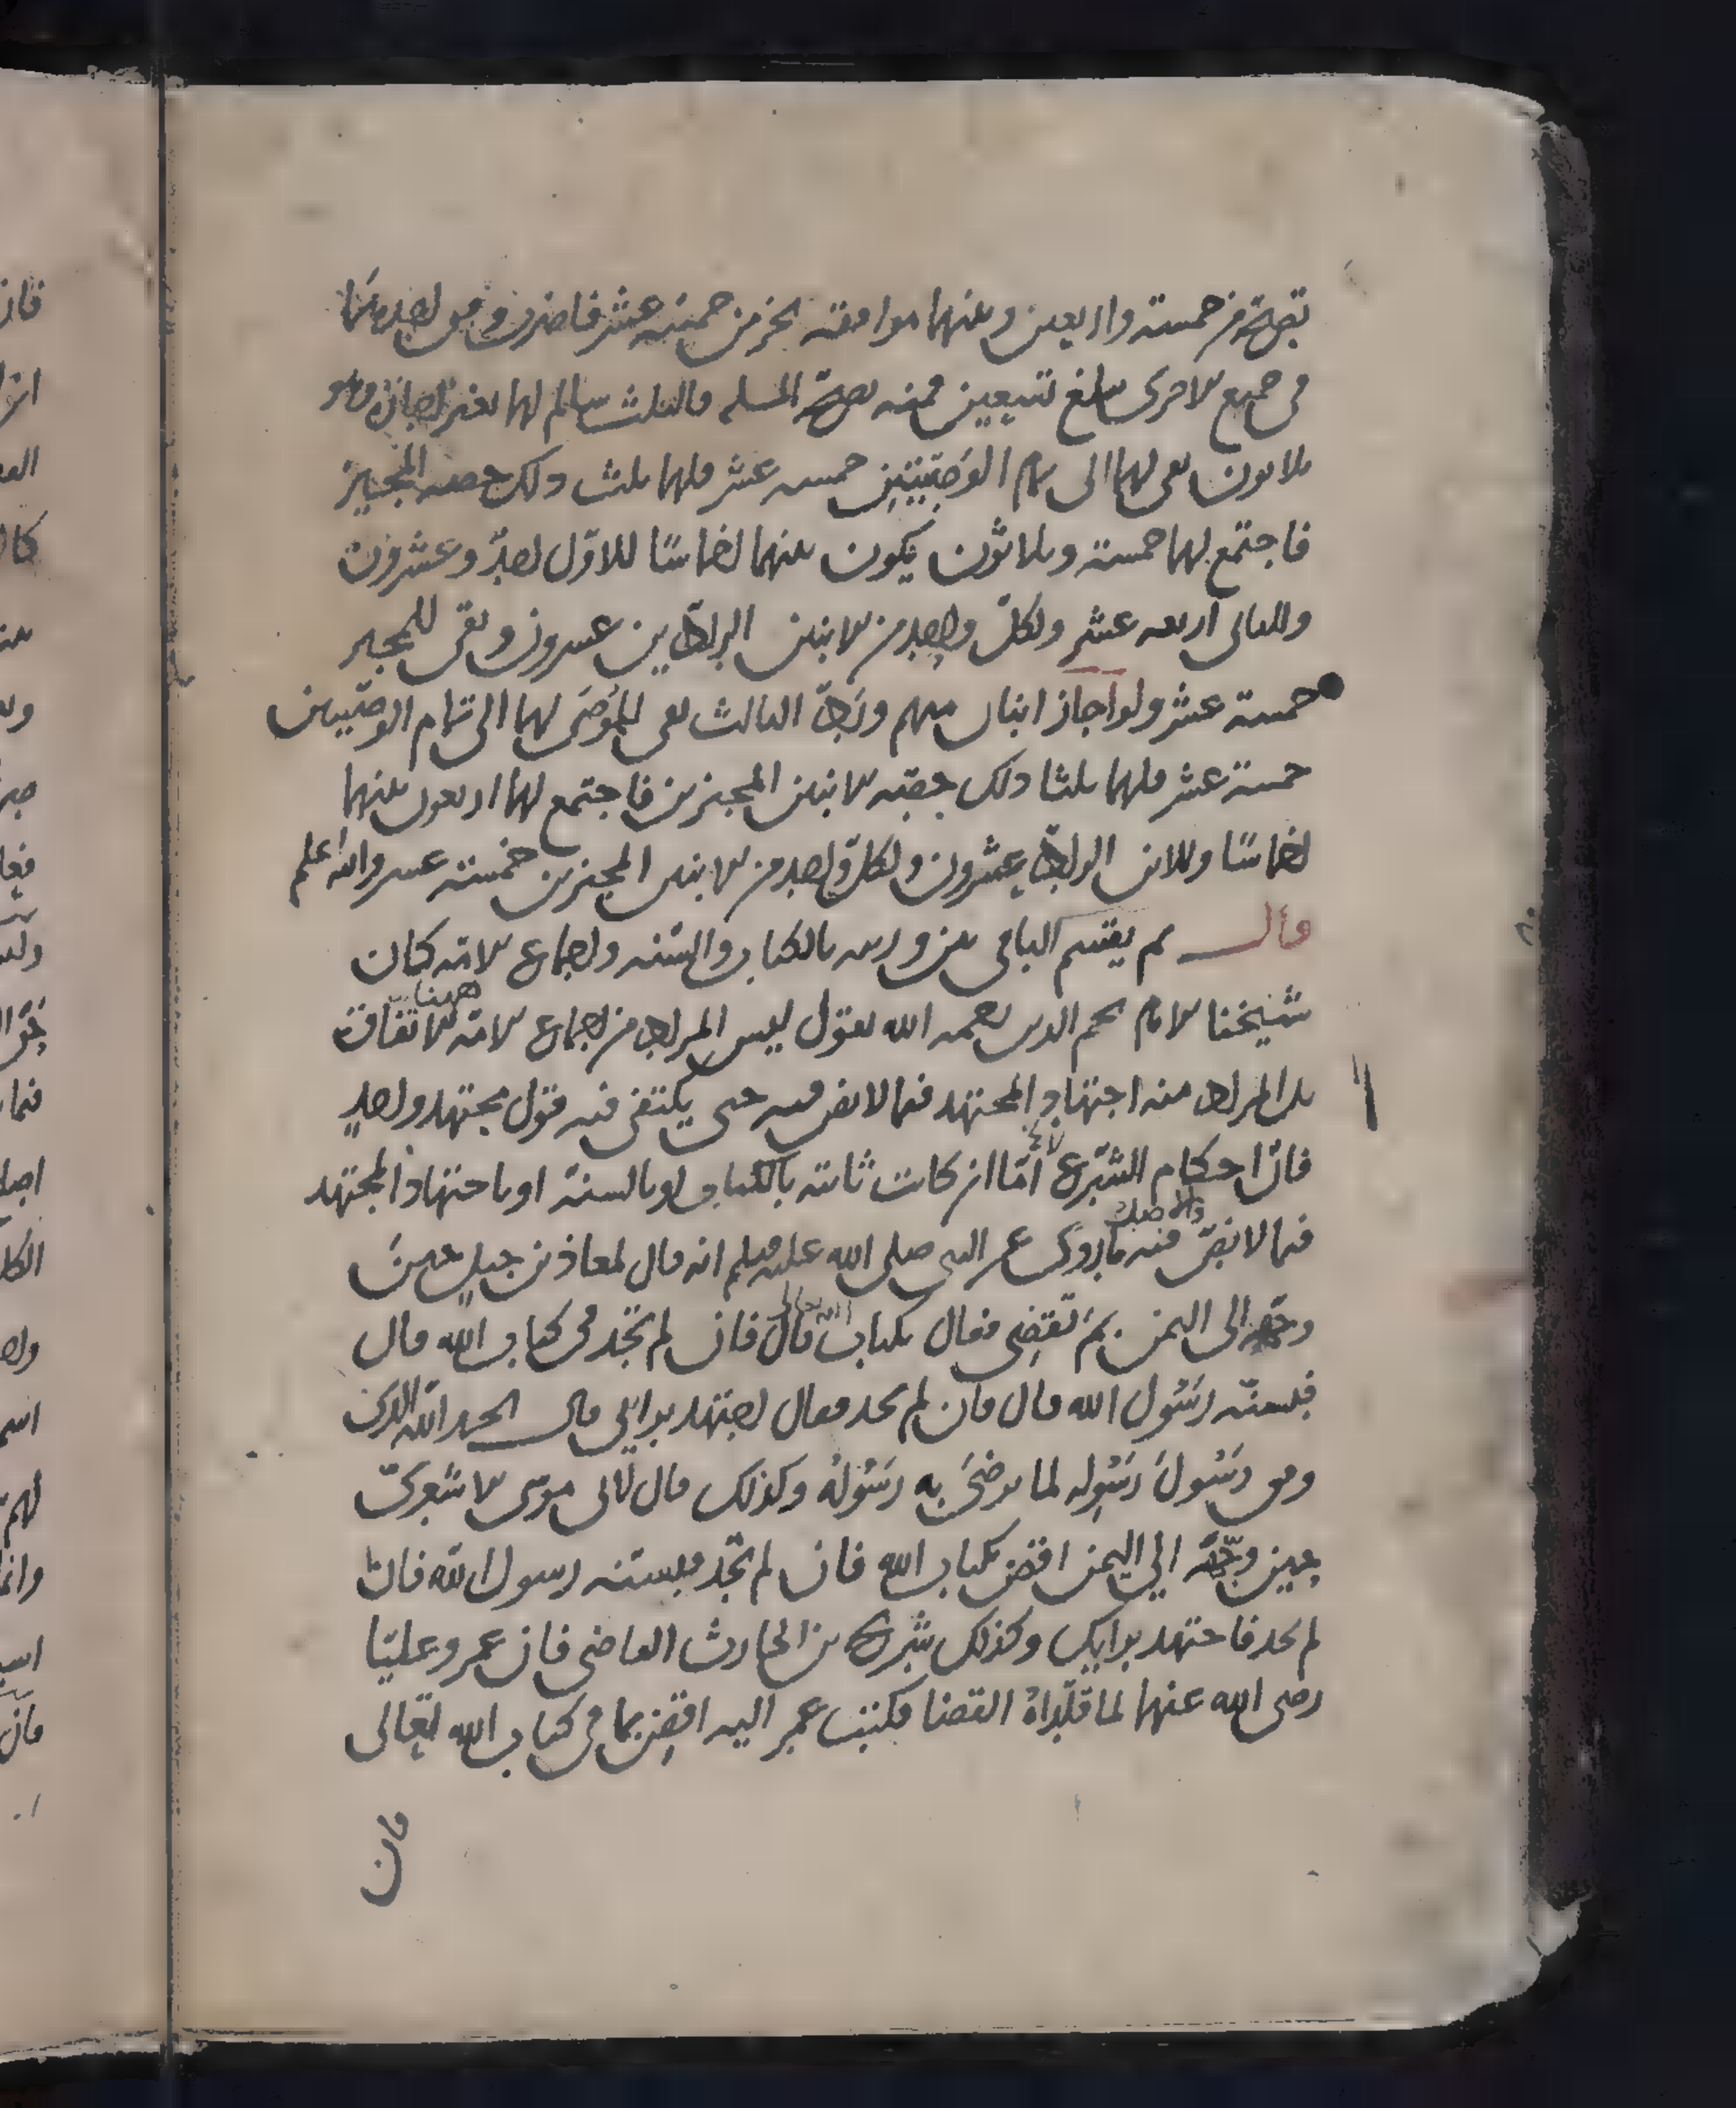 تصح من خمسة واربعين وبينهما موافقة بجزء من خمسة عشر فاضرب وفق احدهما
في جميع الاخرى يبلغ تسعين فمنه تصح المسله فالثلث سالم لهما بغير اجازة وهو
ثلاثون بقي لهما الى تمام الوصيتين خمسة عشر فلهما ثلث ذلك حصه المجيز
فاجتمع لهما خمسة وثلاثون يكون بينهما اخماسا للاول احد وعشرون
وللثاني اربعه عشر ولكل واحد من الابنين الرادين عشرون وبقى للمجيز
خمسة عشر ولو اجاز ابنان منهم ورد الثالث بقي للموصى لهما الى تمام الوصيتين
خمسة عشر فلهما ثلثا ذلك حصة الابنين المجيزين فاجتمع لهما اربعون بينهما
اخماسا وللابن الراد عشرون ولكل واحد من الابنين المجيزين خمسة عشر والله اعلم
قال ثم يقسم الباقي بين ورثته بالكتاب والسنه واجماع الامة كان
شيخنا الامام نجم الدين رحمه الله يقول ليس المراد من اجماع الامة ههنا الاتفاق
بل المراد منه اجتهاد المجتهد فيما لا نص فيه حتى يكتفى فيه قول مجتهد واحد
فان احكام الشرع اما ان كانت ثابتة بالكتاب او بالسنة او باجتهاد المجتهد
فيما لا نص فيه والاصل ما روى عن النبي صلى الله عليه وسلم انه قال لمعاذ بن جبل حين
وجهه الى اليمن بم تقضي فقال بكتاب الله تعالى قال فان لم تجد في كتاب الله قال
فبسنة رسول الله قال فان لم تجد فقال اجتهد برأيي قال الحمد لله الذى
وفق رسول رسوله لما يرضى به رسوله وكذلك قال لابي موسى الاشعري
حين وجهه الى اليمن اقض بكتاب الله فان لم تجد فبسنة رسول الله فان
لم تجد فاجتهد برايك وكذلك شريح بن الحارث القاضي فان عمر وعليا
رضى الله عنهما لما قلداه القضا فكتب عمر اليه اقض بما في كتاب الله تعالى
فان